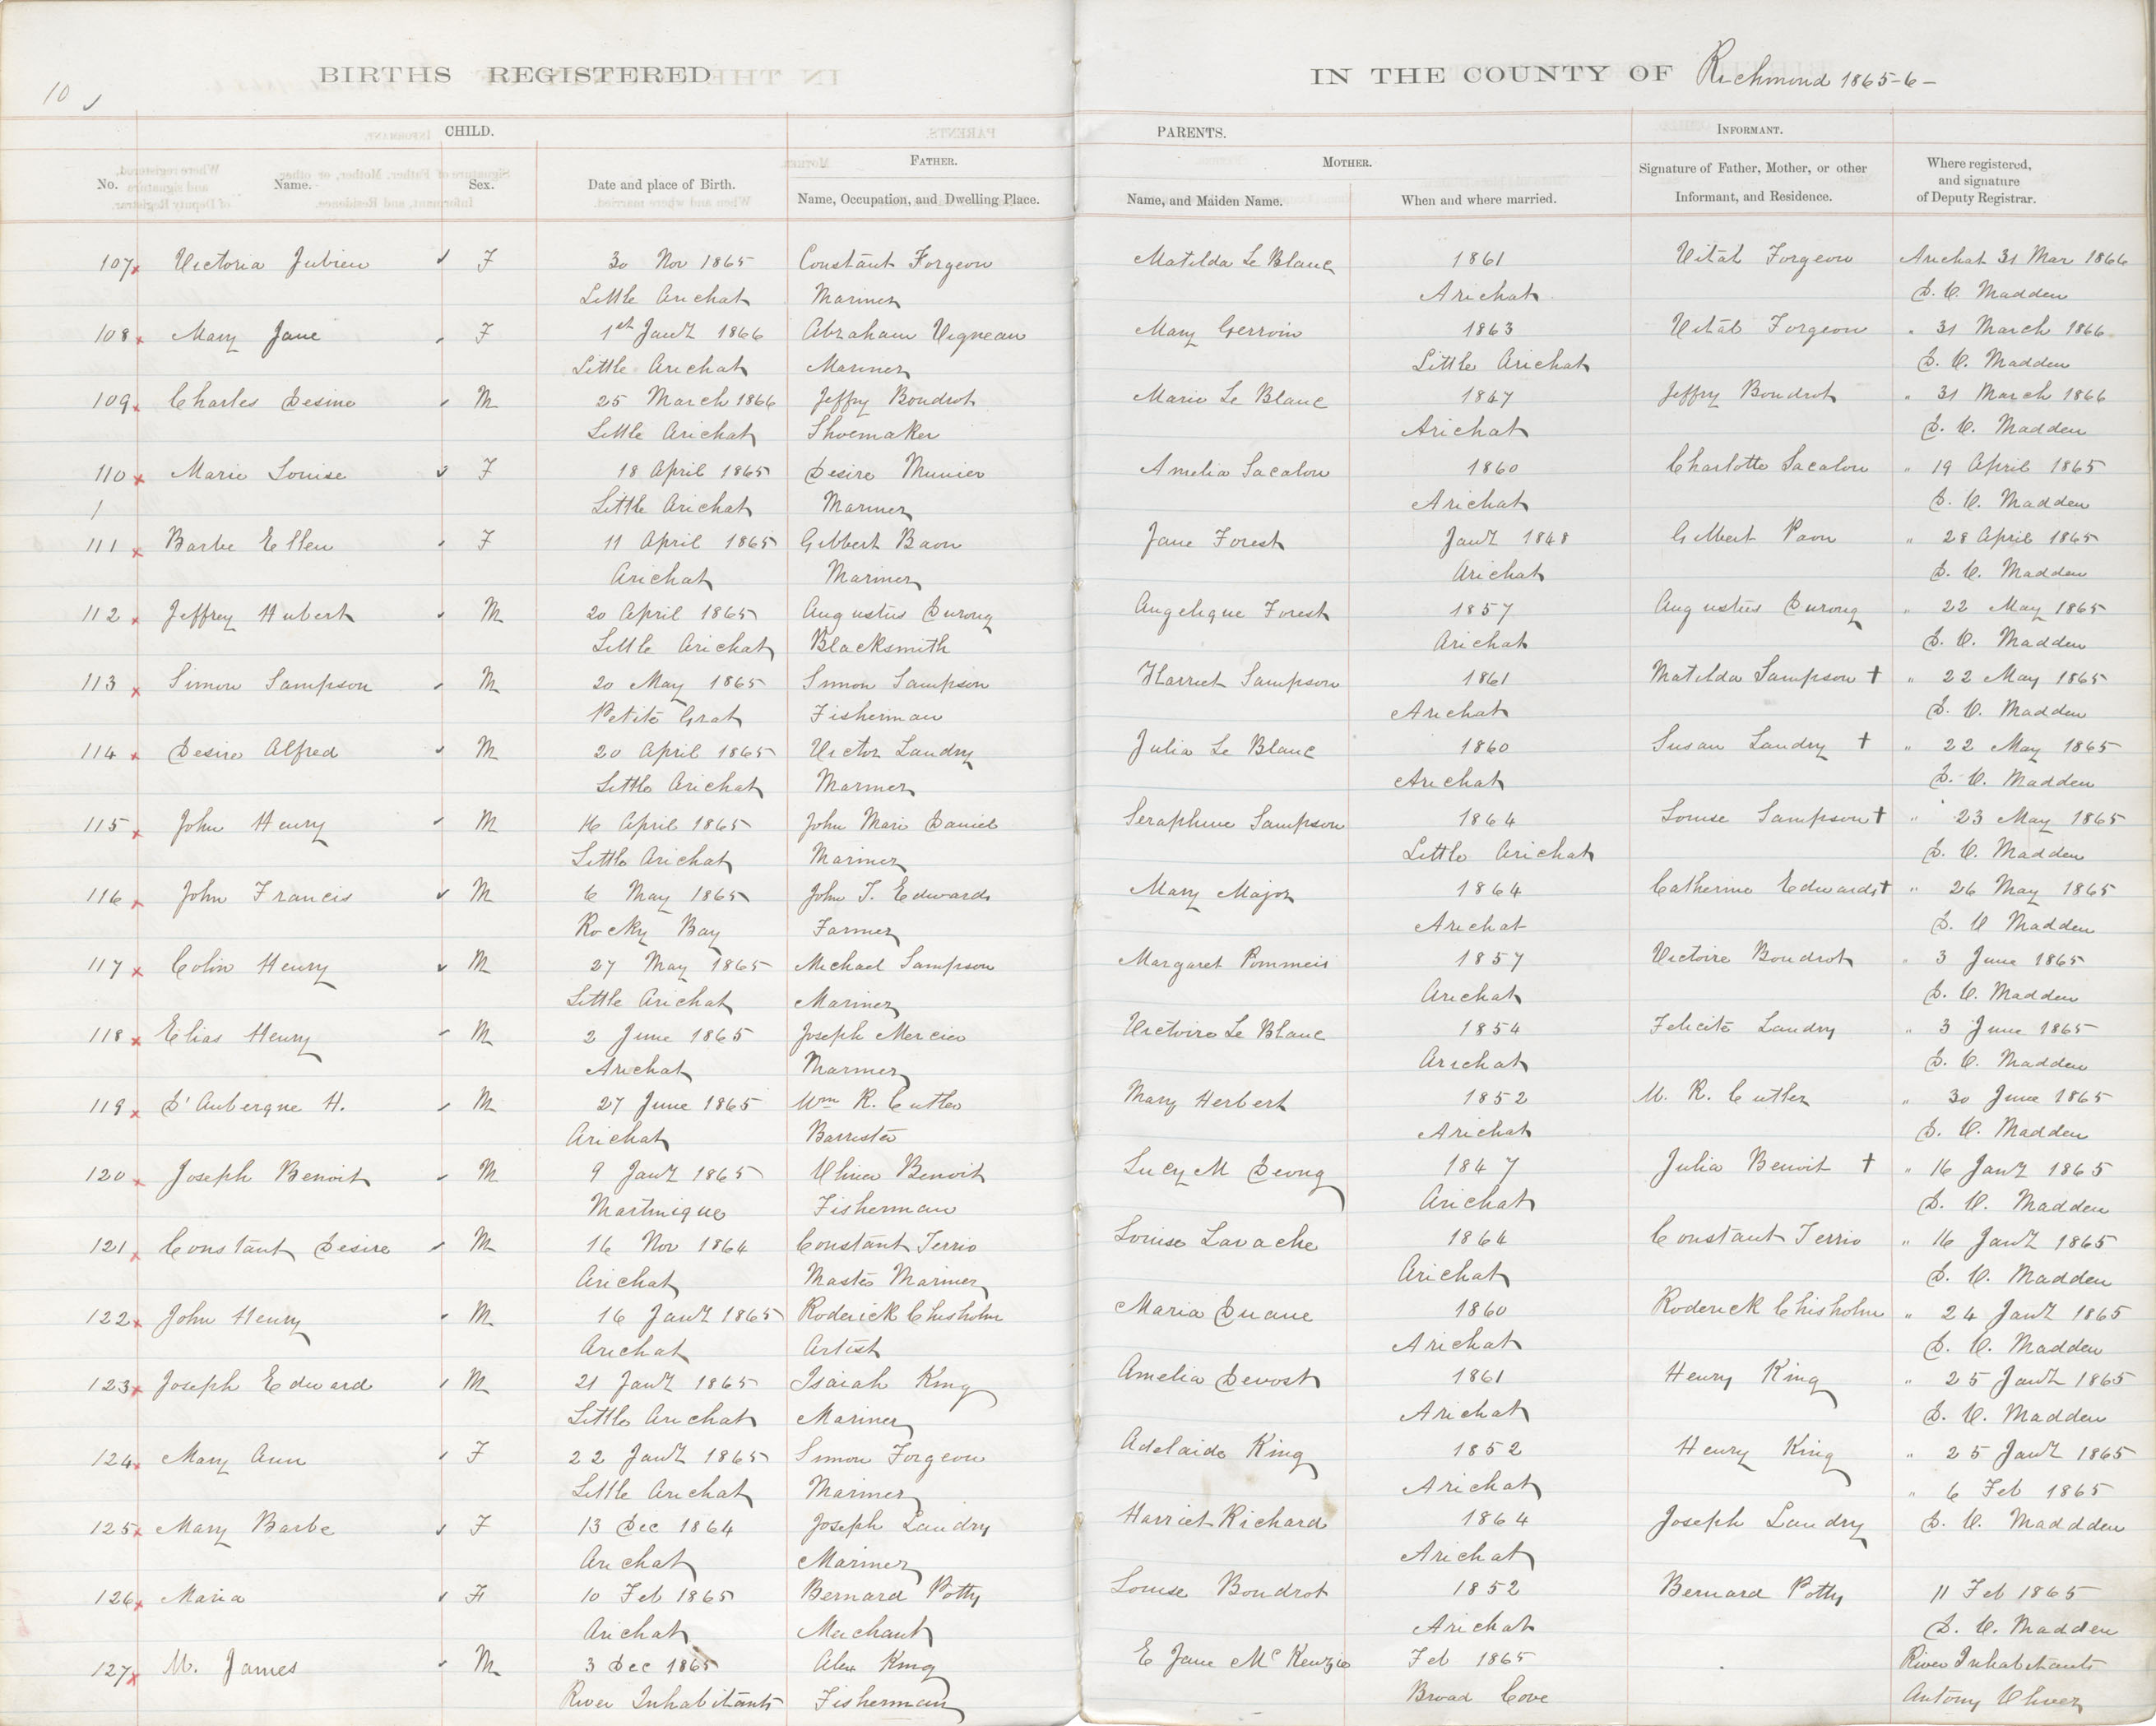 10 ✓
BIRTHS REGISTERED IN THE COUNTY OF Richmond 1865-6-
CHILD. PARENTS. INFORMANT.
FATHER. MOTHER.
No. Name. Sex. Date and place of Birth. Name, Occupation, and Dwelling Place. Name, and Maiden Name. When and where married. Signature of Father, Mother, or other Informant, and Residence. Where registered, and signature of Deputy Registrar.
107 x Victoria Jubien ✓ F 30 Nov 1865 Constant Forgeon Matilda Le Blanc 1861 Vital Forgeon Arichat 31 Mar 1866
Little Arichat Mariner Arichat D. C. Madden
108 x Mary Jane F 1st Jany 1866 Abraham Vigneau Mary Gerroin 1863 Vital Forgeon " 31 March 1866
Little Arichat Mariner Little Arichat D. C. Madden
109 x Charles Desire M 25 March 1866 Jeffry Boudrot Marie Le Blanc 1847 Jeffry Boudrot " 31 March 1866
Little Arichat Shoemaker Arichat D. C. Madden
110 x Marie Louise ✓ F 18 April 1865 Desire Munier Amelia Lacalou 1860 Charlotte Lacalou " 19 April 1865
Little Arichat Mariner Arichat D. C. Madden
111 x Barbe Ellen F 11 April 1865 Gilbert Baon Jane Forest Jany 1848 Gilbert Paon " 28 April 1865
Arichat Mariner Arichat D. C. Madden
112 x Jeffrey Hubert M 20 April 1865 Augustus Durong Angelique Forest 1857 Augustus Durong " 22 May 1865
Little Arichat Blacksmith Arichat D. C. Madden
113 x Simon Sampson M 20 May 1865 Simon Sampson Harriet Sampson 1861 Matilda Sampson † " 22 May 1865
Petite Grat Fisherman Arichat D. C. Madden
114 x Desire Alfred ✓ M 20 April 1865 Victor Landry Julia Le Blanc 1860 Susan Landry † " 22 May 1865
Little Arichat Mariner Arichat D. C. Madden
115 x John Henry M 16 April 1865 John Marie Daniel Seraphine Sampson 1864 Louise Sampson † " 23 May 1865
Little Arichat Mariner Little Arichat D. C. Madden
116 x John Francis ✓ M 6 May 1865 John T. Edwards Mary Major 1864 Catherine Edwards † " 26 May 1865
Rocky Bay Farmer Arichat D. C Madden
117 x Colin Henry ✓ M 27 May 1865 Michael Sampson Margaret Pommeis 1857 Victoire Boudrot " 3 June 1865
Little Arichat Mariner Arichat D. C. Madden
118 x Elias Henry M 2 June 1865 Joseph Mercier Victoire Le Blanc 1854 Felicité Landry " 3 June 1865
Arichat Mariner Arichat D. C. Madden
119 x D'Aubergne H. M 27 June 1865 Wm R. Cutler Mary Herbert 1852 M. R. Cutler " 30 June 1865
Arichat Barrister Arichat D. C. Madden
120 x Joseph Benoit M 9 Jany 1865 Oliver Benoit Lucy M Deong 1847 Julia Benoit † " 16 Jany 1865
Martinique Fisherman Arichat D. C. Madden
121 x Constant Desire M 16 Nov 1864 Constant Terrio Louise Lavache 1864 Constant Terrio " 16 Jany 1865
Arichat Master Mariner Arichat D. C. Madden
122 x John Henry M 16 Jany 1865 Roderick Chisholm Maria Duane 1860 Roderick Chisholm " 24 Jany 1865
Arichat Artist Arichat D. C. Madden
123 x Joseph Edward M 21 Jany 1865 Isaiah King Amelia Devost 1861 Henry King " 25 Jany 1865
Little Arichat Mariner Arichat D. C. Madden
124 x Mary Ann F 22 Jany 1865 Simon Forgeon Adelaide King 1852 Henry King " 25 Jany 1865
Little Arichat Mariner Arichat " 6 Feb 1865
125 x Mary Barbe ✓ F 13 Dec 1864 Joseph Landry Harriet Richard 1864 Joseph Landry D. C. Maddden
Arichat Mariner Arichat
126 x Maria F 10 Feb 1865 Bernard Potty Louise Boudrot 1852 Bernard Potty 11 Feb 1865
Arichat Merchant Arichat D. C. Madden
127 x M. James M 3 Dec 1865 Alex King E Jane McKenzie Feb 1865 River Inhabitants
River Inhabitants Fisherman Broad Cove Antony Oliver